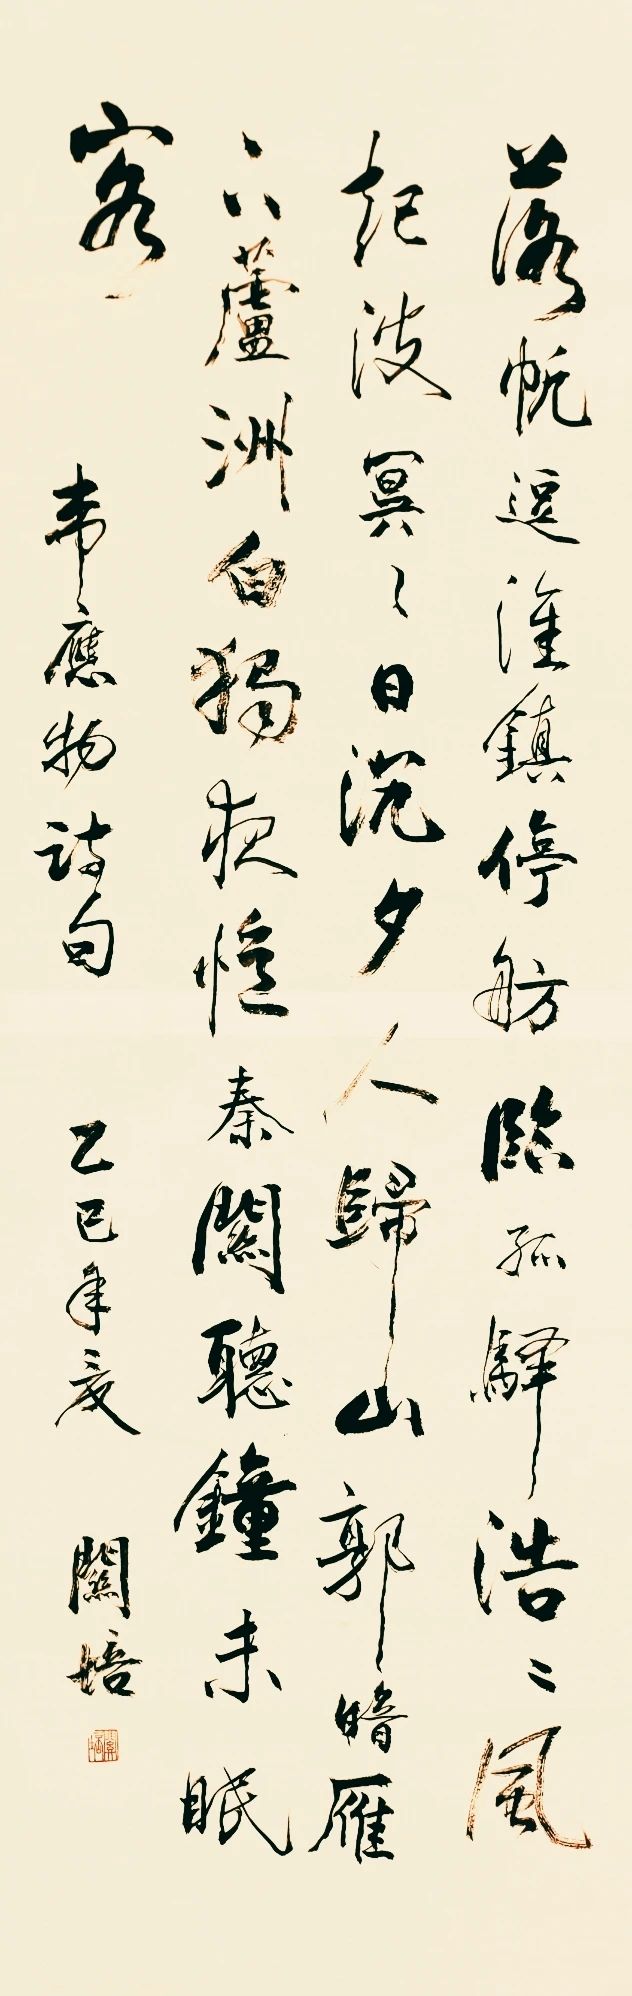 落帆逗淮鎮停舫臨孤驛浩〻風
起波冥〻日沉夕人歸山郭暗雁
下蘆洲白獨夜憶秦關聽鐘未眠
客
韋應物詩句 乙巳年夏 關培